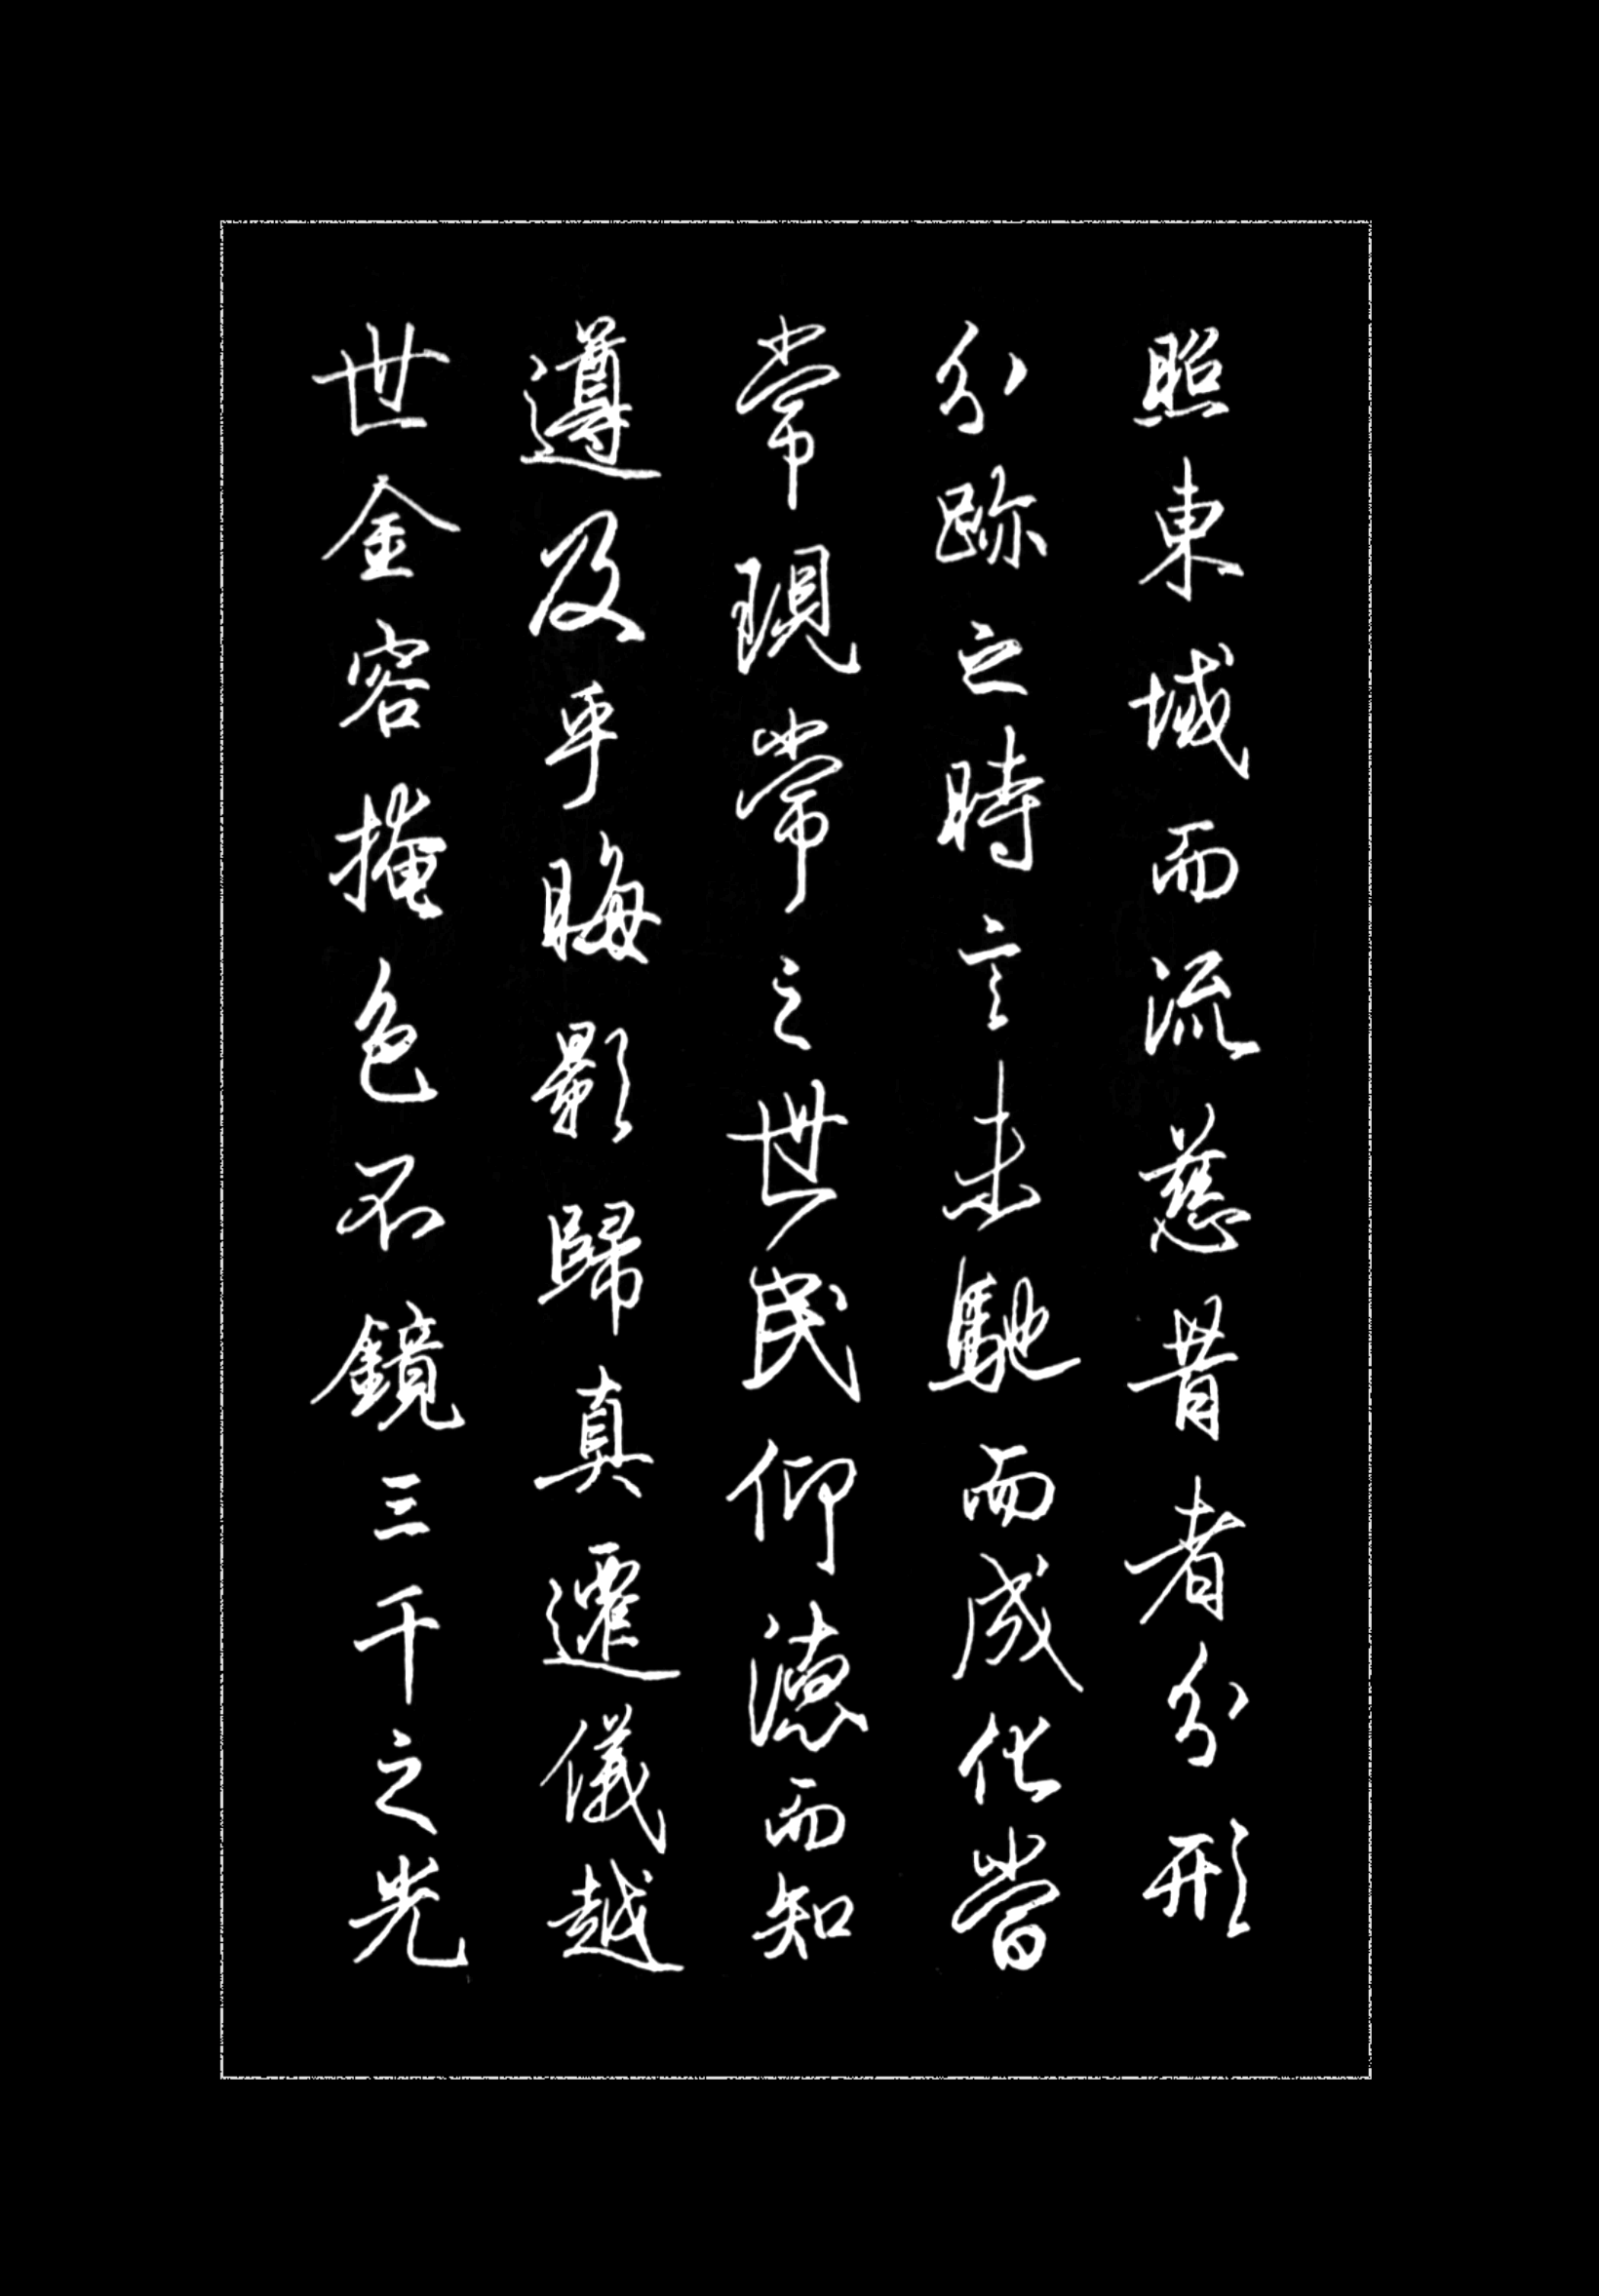 照東域而流慈昔者分形
分跡之時言未馳而成化當
常現常之世民仰德而知
遵及乎晦影歸真遷儀越
世金容掩色不鏡三千之光